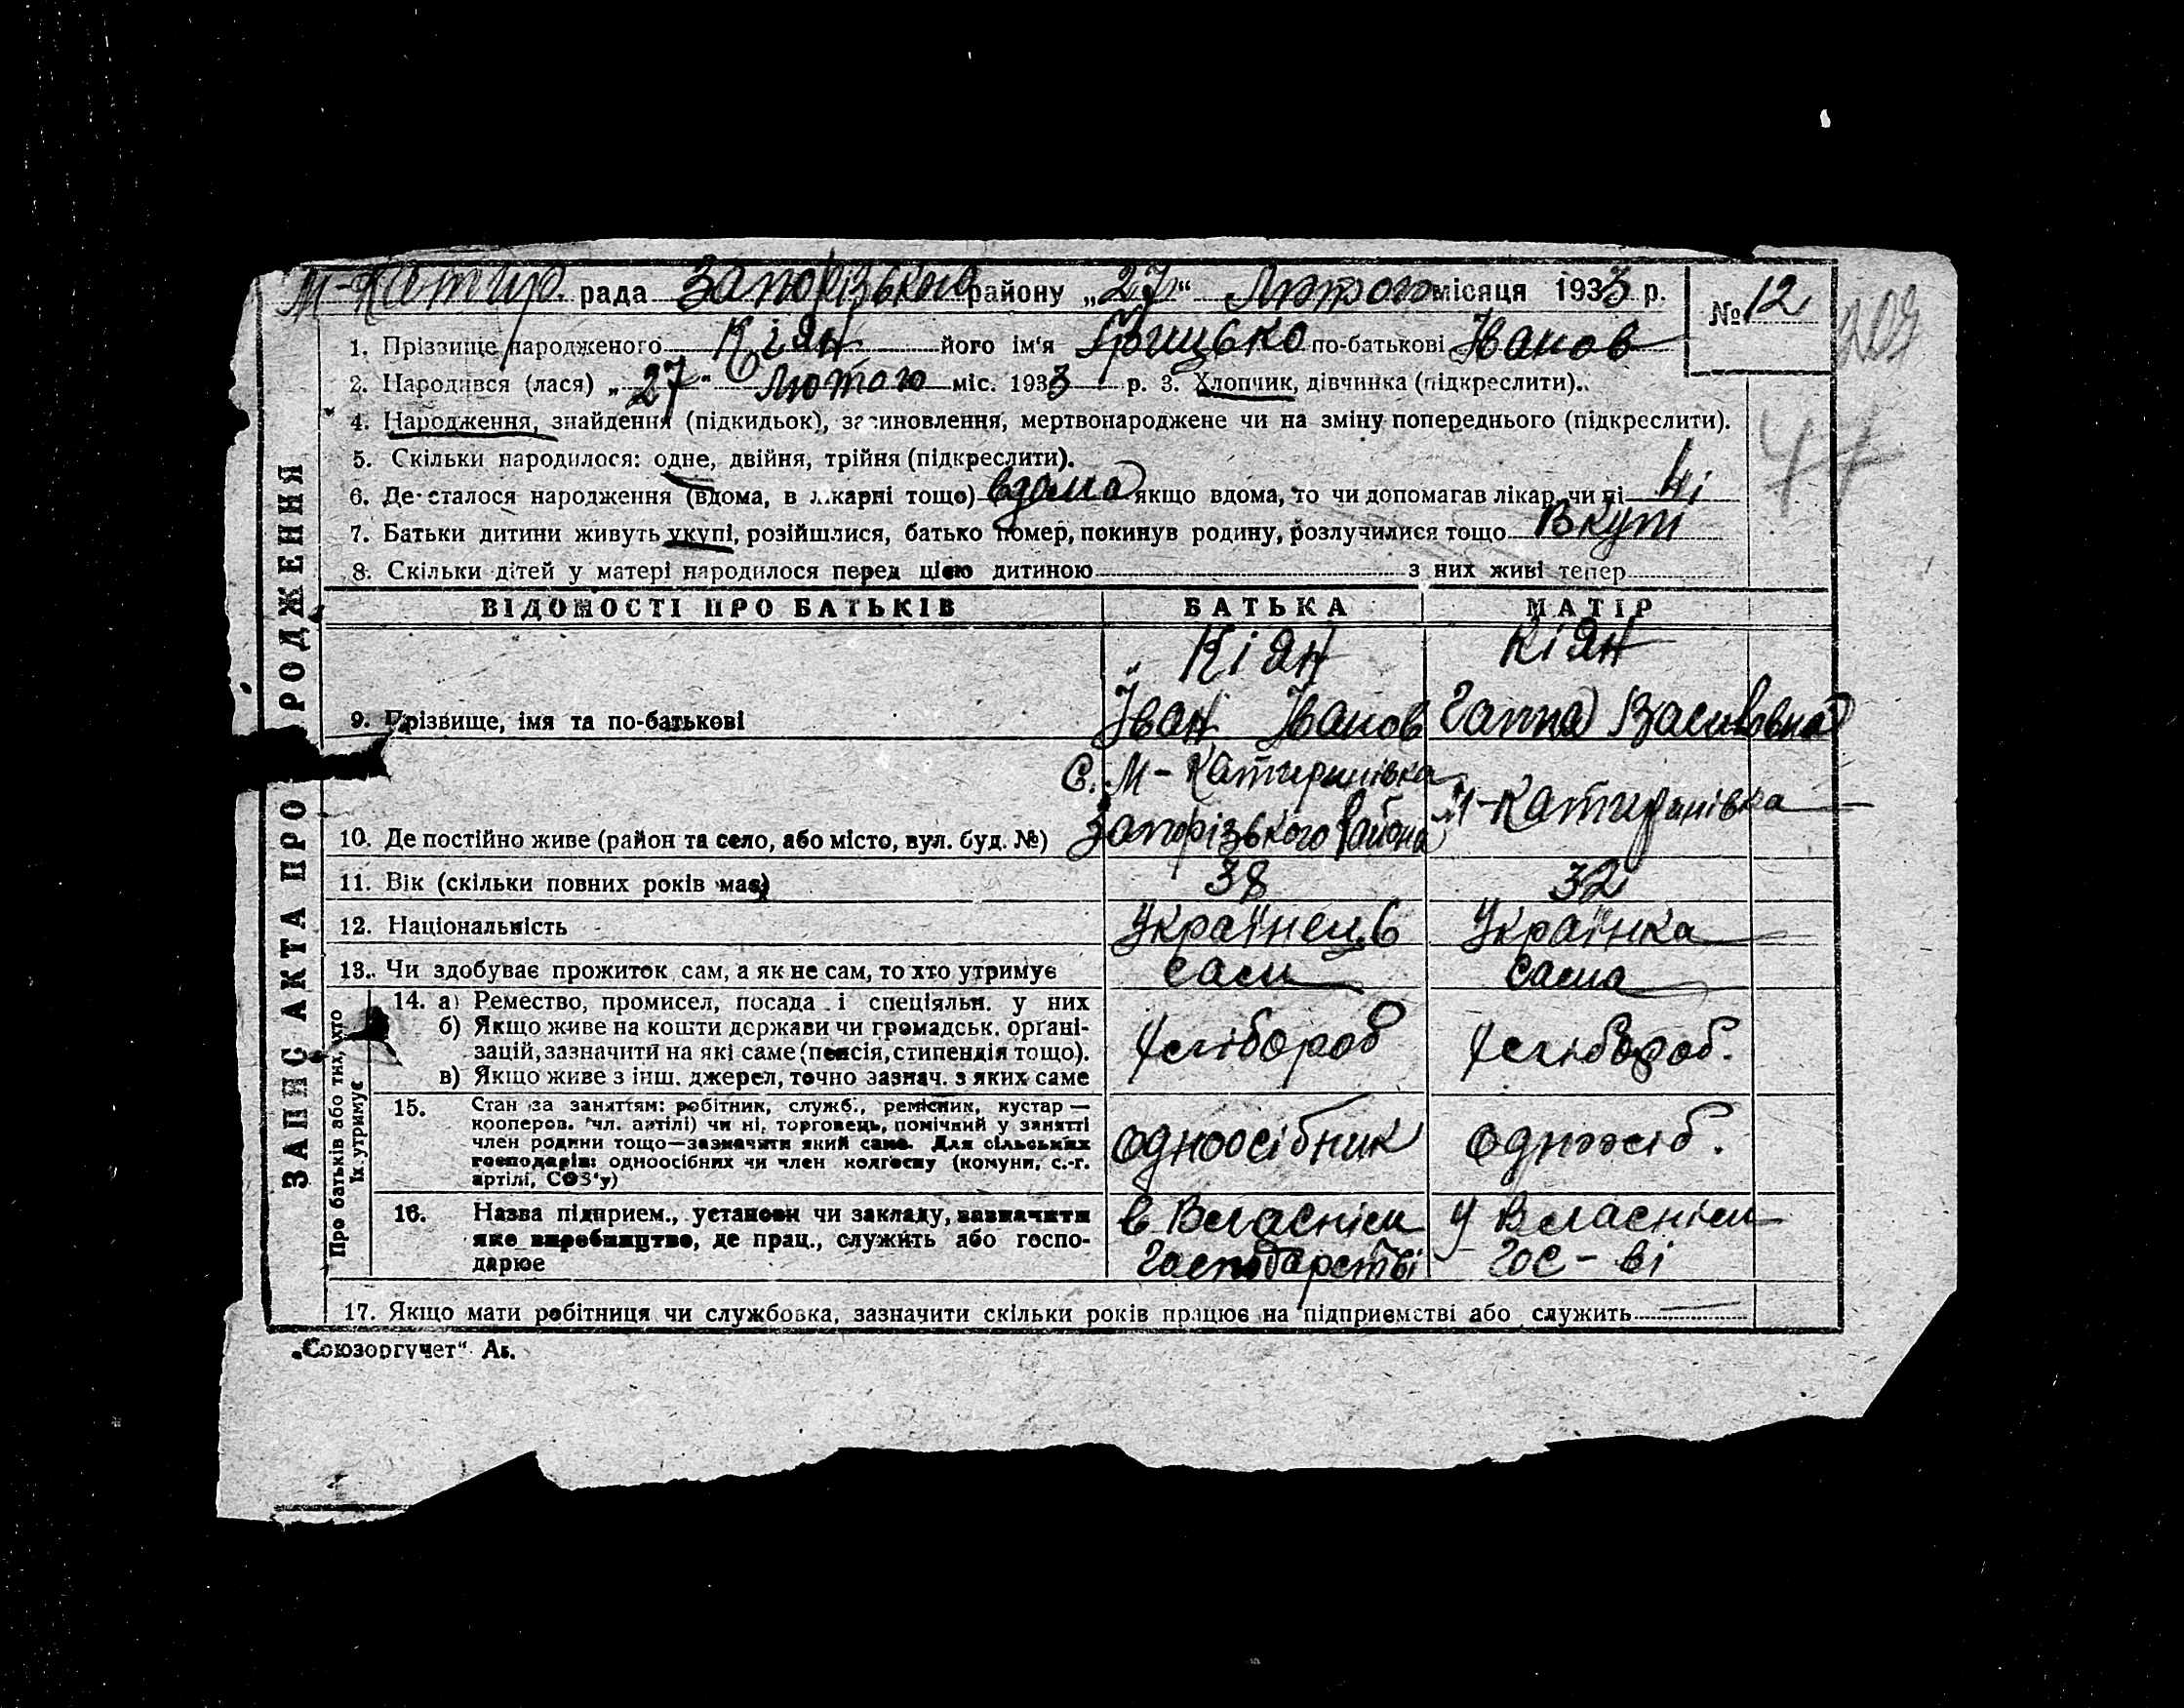 М-Катир. рада Запорізького району „27“ Лютого місяця 1933 р. № 12
1. Прізвище народженого Кіян його ім'я Грицько по-батькові Іванов
2. Народився (лася) „27“ Лютого міс. 1933 р. 3. Хлопчик, дівчинка (підкреслити).
4. Народження, знайдення (підкидьок), засиновлення, мертвонароджене чи на зміну попереднього (підкреслити).
47
5. Скільки народилося: одне, двійня, трійня (підкреслити).
6. Де сталося народження (вдома, в лікарні тощо) вдома якщо вдома, то чи допомагав лікар чи ні Ні
7. Батьки дитини живуть укупі, розійшлися, батько помер, покинув родину, розлучилися тощо Вкупі
8. Скільки дітей у матері народилося перед цією дитиною з них живі тепер
ЗАПИС АКТА ПРО РОДЖЕННЯ
ВІДОМОСТІ ПРО БАТЬКІВ БАТЬКА МАТІР
Кіян Кіян
9. Прізвище, імя та по-батькові Іван Іванов Ганна Василовна
С. М-Катиринівка М-Катиринівка
10. Де постійно живе (район та село, або місто, вул. буд. №) Запорізького района
11. Вік (скільки повних років має) 38 32
12. Національність Українець Українка
13. Чи здобуває прожиток сам, а як не сам, то хто утримує сам сама
Про батьків або тих, хто
їх утримує
14. а) Ремество, промисел, посада і спеціяльн. у них
б) Якщо живе на кошти держави чи громадськ. орґані-
зацій, зазначити на які саме (пенсія, стипендія тощо). Хлібороб Хлібороб.
в) Якщо живе з інш. джерел, точно зазнач. з яких саме
15. Стан за заняттям: робітник, служб., ремісник, кустар —
кооперов. чл. артілі) чи ні, торговець, помічний у занятті
член родини тощо—зазначити який саме. Для сільських одноосібник одноосіб.
господарів: одноосібник чи член колгоспу (комуни, с.-г.
артілі, СОЗ'у)
16. Назва підприєм., установи чи закладу, зазначити в Власнім у Власнім
яке виробництво, де прац., служить або госпо- Господарстві Гос-ві
дарює
17. Якщо мати робітниця чи службовка, зазначити скільки років працює на підприємстві або служить —
„Союзоргучет“